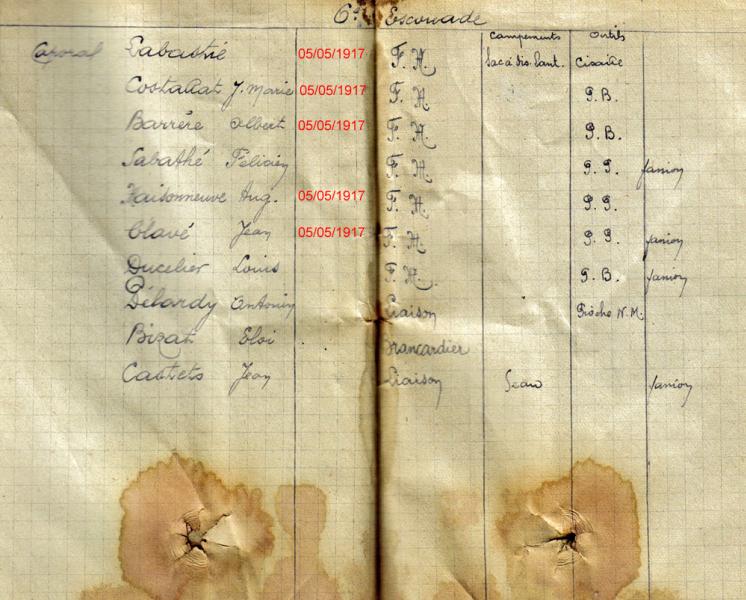 6e Escouade
Campements Outils
Caporal Labastié 05/05/1917 F. H. Sac à dis. Sant. Cisaille
Costallat J. Marie 05/05/1917 F. H. P. B.
Barrère Albert 05/05/1917 F. H. P. B.
Sabathé Félicien F. H. P. P. fanion
Maisonneuve Aug. 05/05/1917 F. H. P. P.
Clavé Jean 05/05/1917 F. H. P. P. fanion
Ducelier Louis F. H. P. B. fanion
Délardy Antonin Liaison Pioche N. M.
Bizat Eloi Brancardier
Castets Jean Liaison Seau fanion